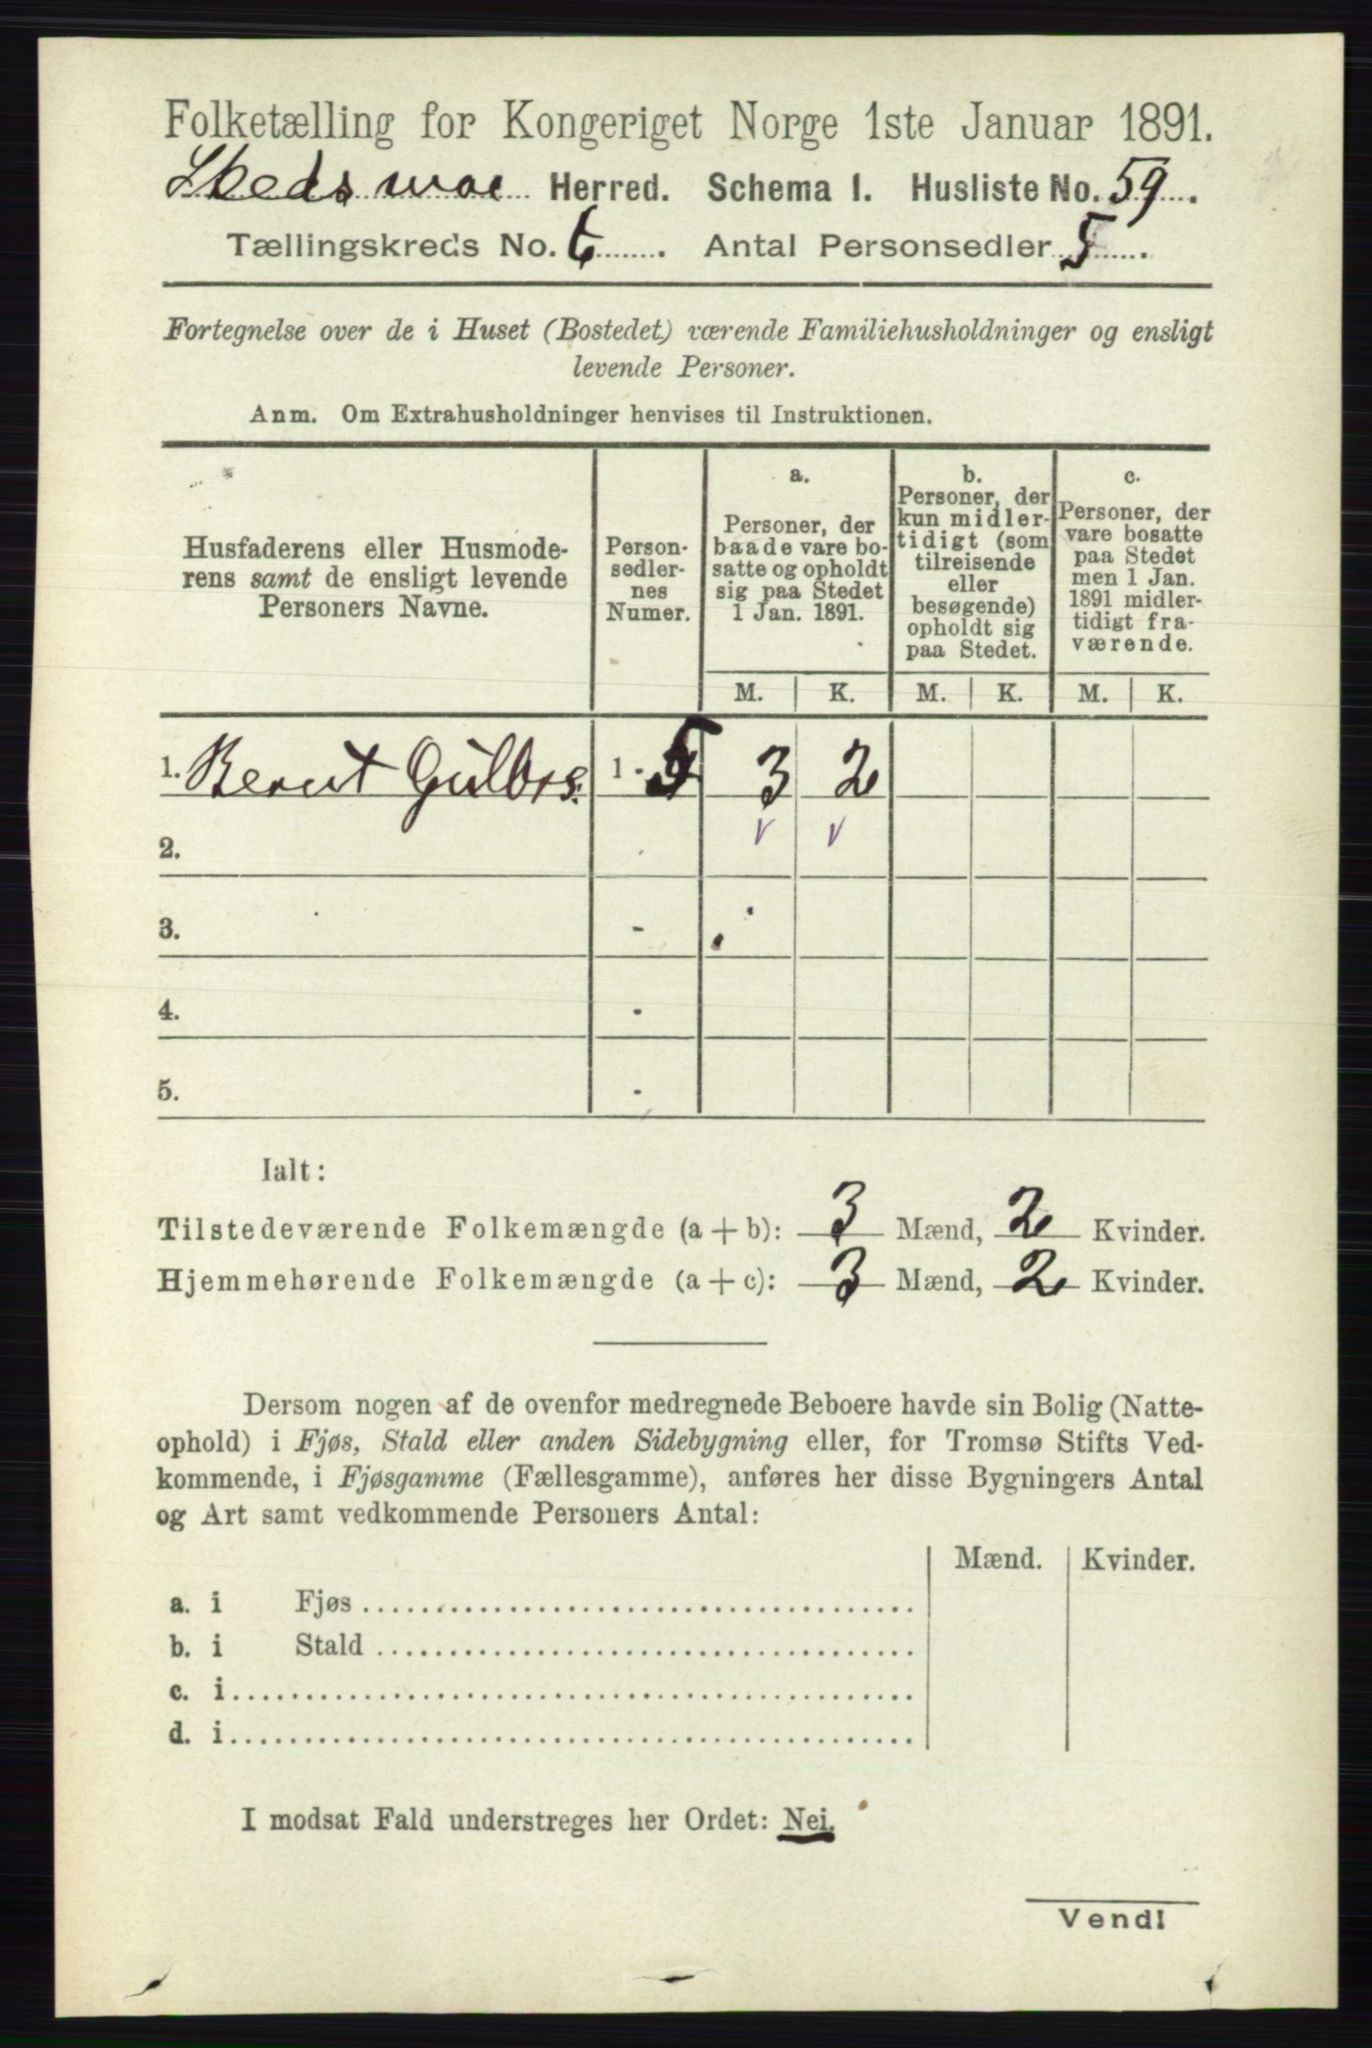 Folketælling for Kongeriget Norge 1ste Januar 1891.
Skedsmoe Herred. Schema 1. Husliste No. 59.
Tællingskreds No. 6. Antal Personsedler 5.
Fortegnelse over de i Huset (Bostedet) værende Familiehusholdninger og ensligt
levende Personer.
Anm. Om Extrahusholdninger henvises til Instruktionen.
Husfaderens eller Husmode-
rens samt de ensligt levende
Personers Navne.
Person-
sedler-
nes
Numer.
a.
Personer, der
baade vare bo-
satte og opholdt
sig paa Stedet
1 Jan. 1891.
b.
Personer, der
kun midler-
tidigt (som
tilreisende
eller
besøgende)
opholdt sig
paa Stedet.
c.
Personer, der
vare bosatte
paa Stedet
men 1 Jan.
1891 midler-
tidigt fra-
værende.
M. K. M. K. M. K.
1. Bernt Gulbrs. 1 - 5 3 2
2. v v
3. -
4. -
5. -
Ialt:
Tilstedeværende Folkemængde (a + b): 3 Mænd, 2 Kvinder.
Hjemmehørende Folkemængde (a + c): 3 Mænd, 2 Kvinder.
Dersom nogen af de ovenfor medregnede Beboere havde sin Bolig (Natte-
ophold) i Fjøs, Stald eller anden Sidebygning eller, for Tromsø Stifts Ved-
kommende, i Fjøsgamme (Fællesgamme), anføres her disse Bygningers Antal
og Art samt vedkommende Personers Antal:
Mænd. Kvinder.
a. i Fjøs
b. i Stald
c. i
d. i
I modsat Fald understreges her Ordet: Nei.
Vend!